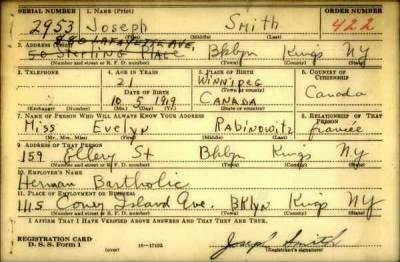 SERIAL NUMBER 1. NAME (Print) ORDER NUMBER
2953 Joseph Smith 422
(First) (Middle) (Last)
890 LAFAYETTE AVE,
2. ADDRESS (Print)
50 Sterling Place Bklyn Kings NY
(Number and street or R. F. D. number) (Town) (County) (State)
3. TELEPHONE 4. AGE IN YEARS 5. PLACE OF BIRTH 6. COUNTRY OF CITIZENSHIP
21 WINNIPEG
(Town or county)
DATE OF BIRTH
10 5 1919 CANADA Canada
(Exchange) (Number) (Mo.) (Day) (Yr.) (State or country)
7. NAME OF PERSON WHO WILL ALWAYS KNOW YOUR ADDRESS 8. RELATIONSHIP OF THAT PERSON
Miss Evelyn Rabinowitz fiancée
(Mr., Mrs., Miss) (First) (Middle) (Last)
9. ADDRESS OF THAT PERSON
159 Ellery St Bklyn Kings NY
(Number and street or R. F. D. number) (Town) (County) (State)
10. EMPLOYER'S NAME
Herman Bartholic
11. PLACE OF EMPLOYMENT OR BUSINESS
1115 Coney Island Ave. BKlyn Kings NY
(Number and street or R. F. D. number) (Town) (County) (State)
I AFFIRM THAT I HAVE VERIFIED ABOVE ANSWERS AND THAT THEY ARE TRUE.
REGISTRATION CARD
D. S. S. Form 1 16—17105 Joseph Smith